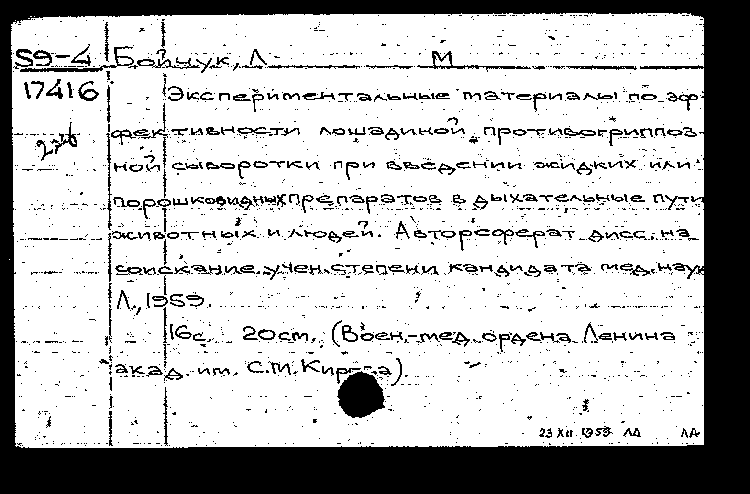 59-4 Бойчук, Л М
17416 Экспериментальные материалы по эф-
фективности лошадиной противогриппоз-
ной сыворотки при введении жидких или
порошковидных препаратов в дыхательные пути
животных и людей. Автореферат дисс. на
соискание учен. степени кандидата мед. наук
Л., 1959.
16с. 20см. (Воен.-мед. ордена Ленина
акад. им. С.М. Кирова).
23 XII 1959 ЛД ЛД